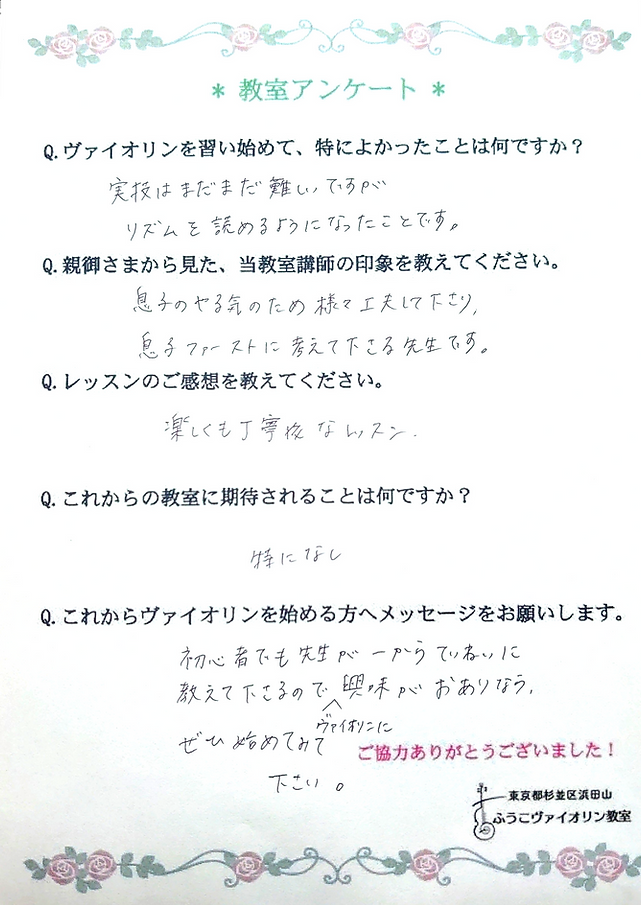 * 教室アンケート *
Q.ヴァイオリンを習い始めて、特によかったことは何ですか？
実技はまだまだ難しいですが
リズムを読めるようになったことです。
Q.親御さまから見た、当教室講師の印象を教えてください。
息子のやる気のため様々工夫して下さり、
息子ファーストに考えて下さる先生です。
Q.レッスンのご感想を教えてください。
楽しくも丁寧なレッスン.
Q.これからの教室に期待されることは何ですか？
特になし
Q.これからヴァイオリンを始める方へメッセージをお願いします。
初心者でも先生が一からていねいに
教えて下さるので興味がおありなら、
ヴァイオリンに
ぜひ始めてみて
ご協力ありがとうございました！
下さい。
東京都杉並区浜田山
ふうこヴァイオリン教室